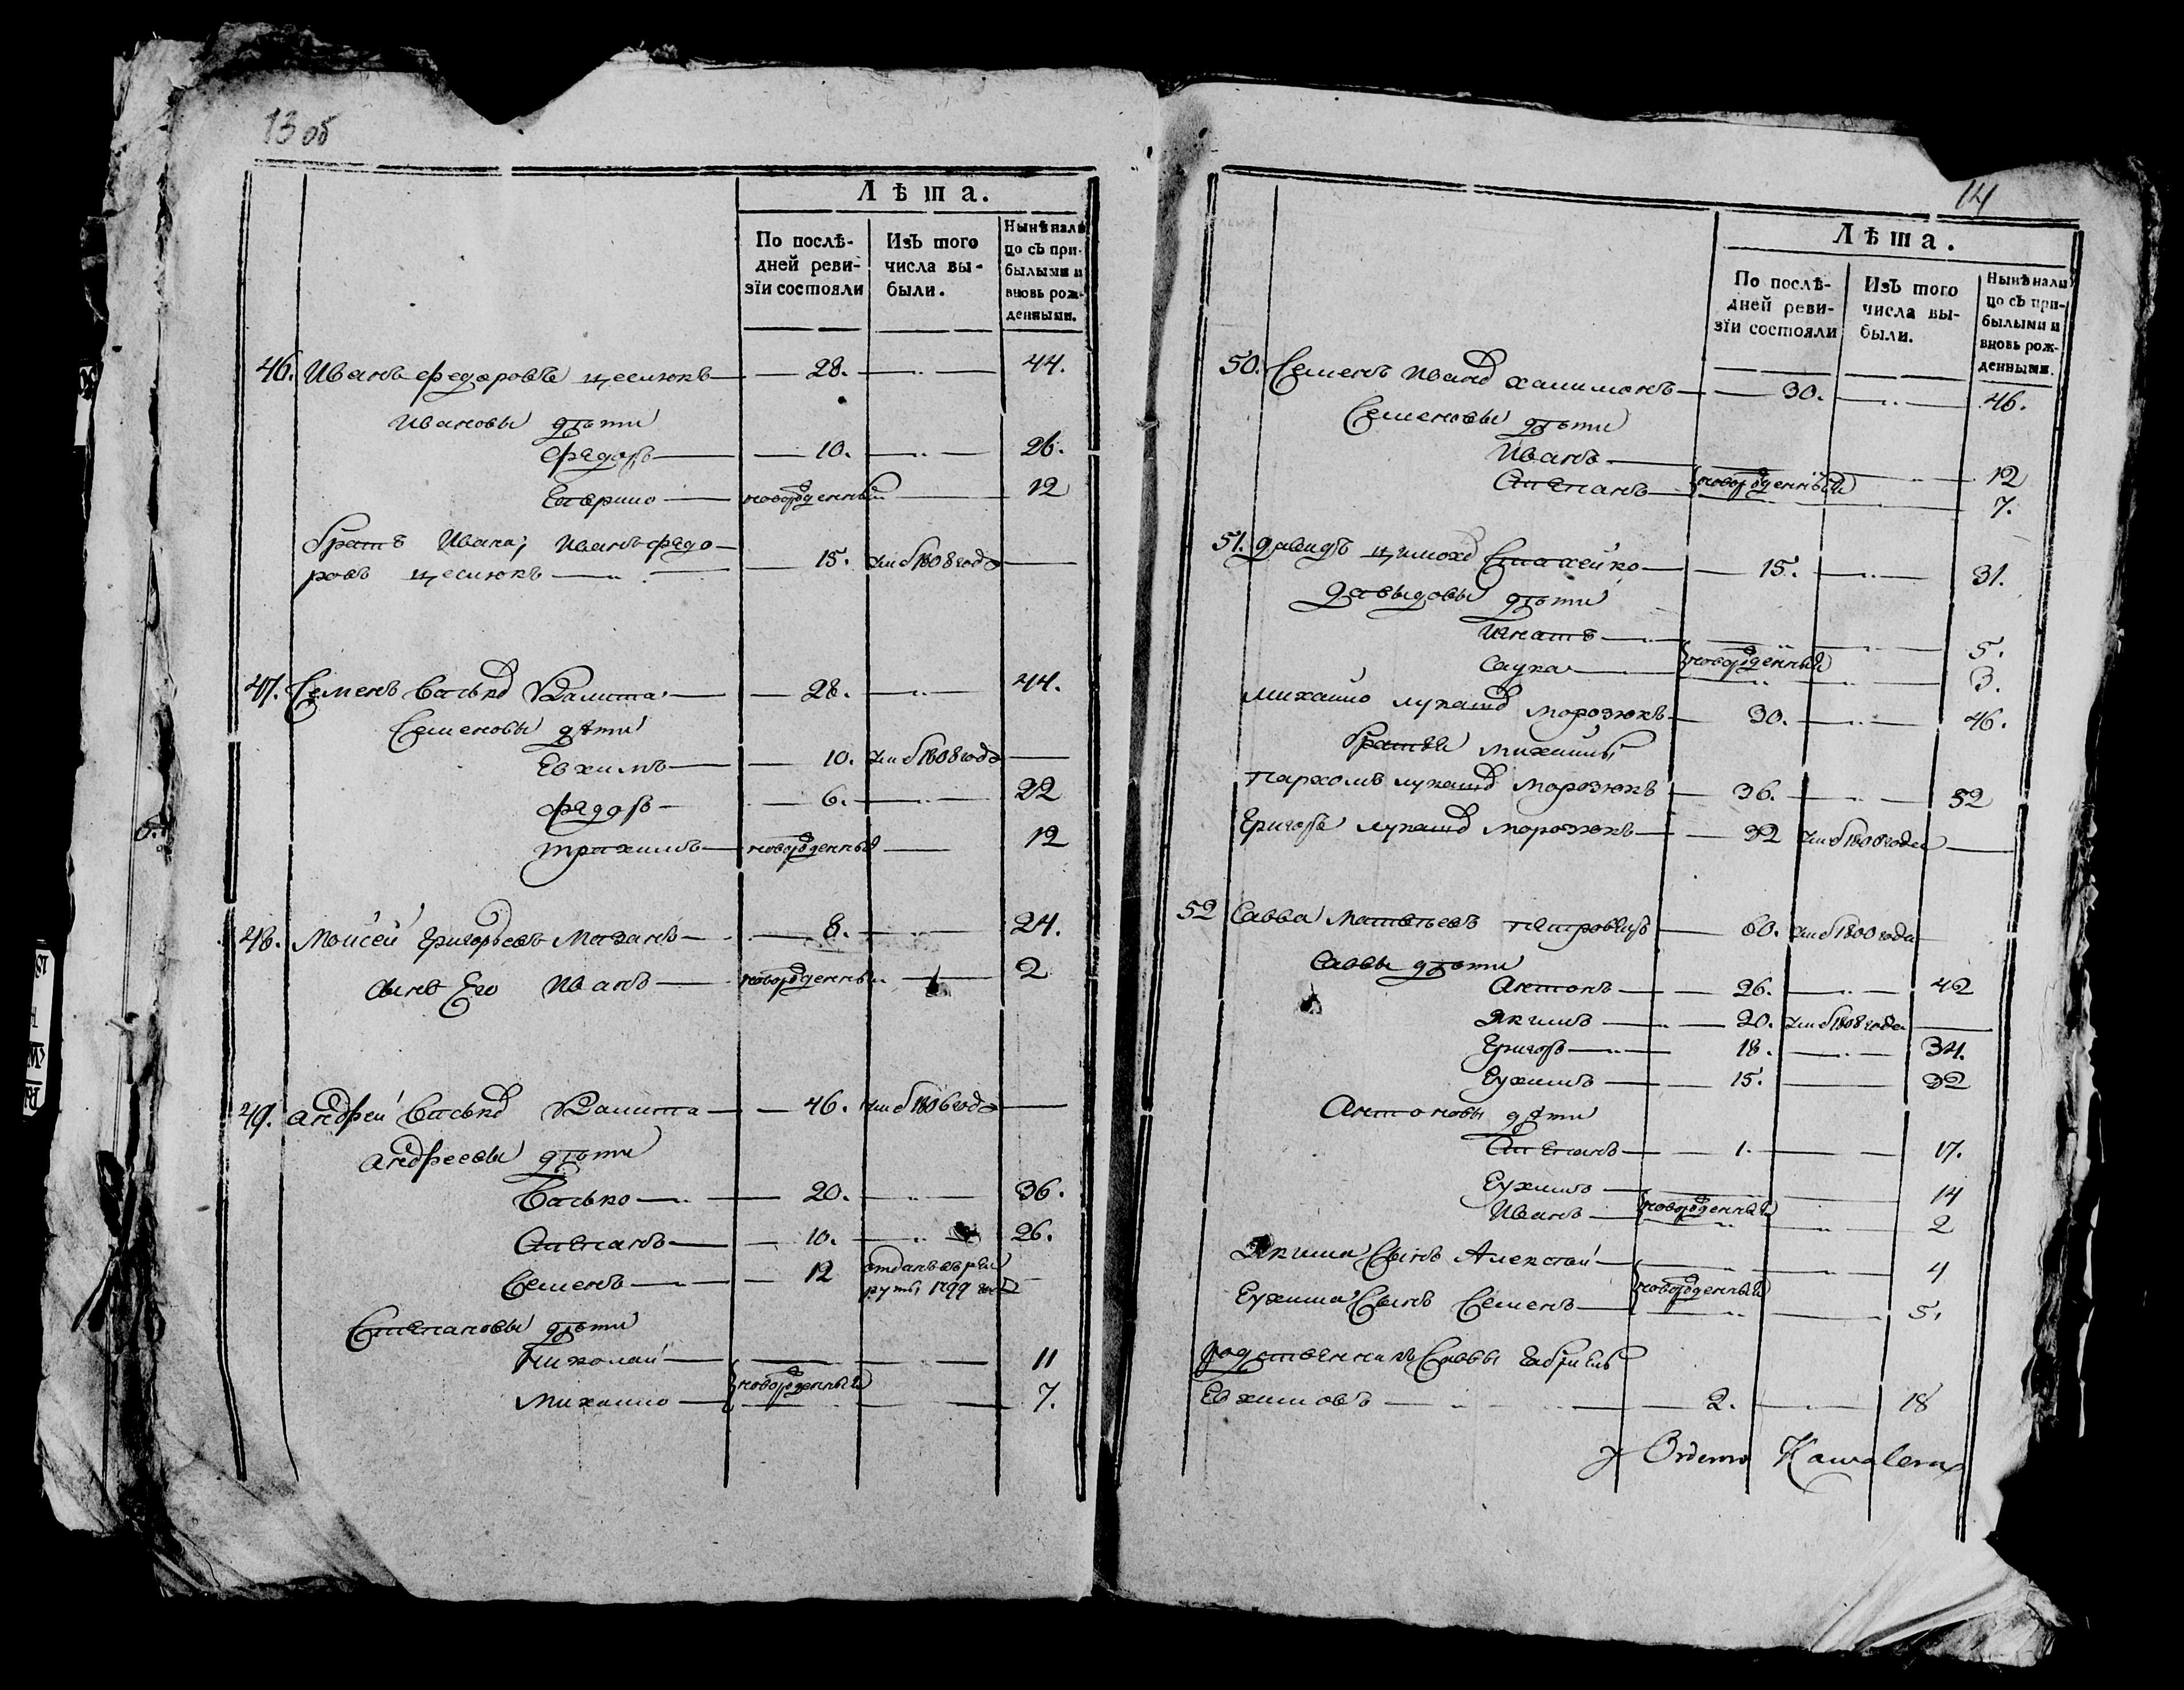 13 об
Лѣта.
По послѣ-
дней реви-
зіи состояли
Изъ того
числа вы-
были.
Нынѣ нали
цо съ при-
былыми и
вновь рож-
денными.
46. Иванъ Федоровъ Цеслюкъ 28. 44.
Ивановы дѣти
Федоръ 10. 26.
новорожденный 12
братъ Ивана, Иванъ Федо
ровъ Цеслюкъ 15. 1808 года
47. Семенъ Васьковъ 28. 44.
Семеновы дѣти
Евхимъ 10. 1808 года
Федоръ 6. 22
Трахимъ новорожденный 12
48. Моисей Григорьевъ Мазанъ 8. 24.
сынъ Его Иванъ новорожденный 2
49. Андрей Васьковъ 46. 1806 года
Андреевы дѣти
Васько 20. 36.
Степанъ 10. 26.
Семенъ 12 отданъ въ рек
руты 1799 года
Степановы дѣти
Николай 11
новорожденныи
Михайло 7.
14
Лѣта.
По послѣ-
дней реви-
зіи состояли
Изъ того
числа вы-
были.
Нынѣ нали
цо съ при-
былыми и
вновь рож-
денными.
50. Семенъ Ивановъ Халимонъ 30. 46.
Семеновы дѣти
Иванъ 12
новорожденныи
Степанъ 7.
51. Давидъ Цимоховъ Стахейко 15. 31.
Давыдовы дѣти
Игнатъ 5.
новорожденныи
Саука 3.
Михайло Лукашовъ Морозюкъ 30. 46.
братья Михайлы
Пархомъ Лукашовъ Морозюкъ 36. 52
Григоръ Лукашовъ Морозюкъ 32 1808 года
52 Савва Матвѣевъ 60. 1800 года
Саввы дѣти
Антонъ 26. 42
Якимъ 20. 1808 года
Григоръ 18. 34.
Еухимъ 15. 32
Антоновы дѣти
Степанъ 1. 17.
Еухимъ 14
новорожденныи
Иванъ 2
Якима Сынъ Алексѣй 4
новорожденныи
Еухима Сынъ Семенъ 5.
родственникъ Саввы Габріель
Евхимовъ 2. 18
y Orderow Kawalera